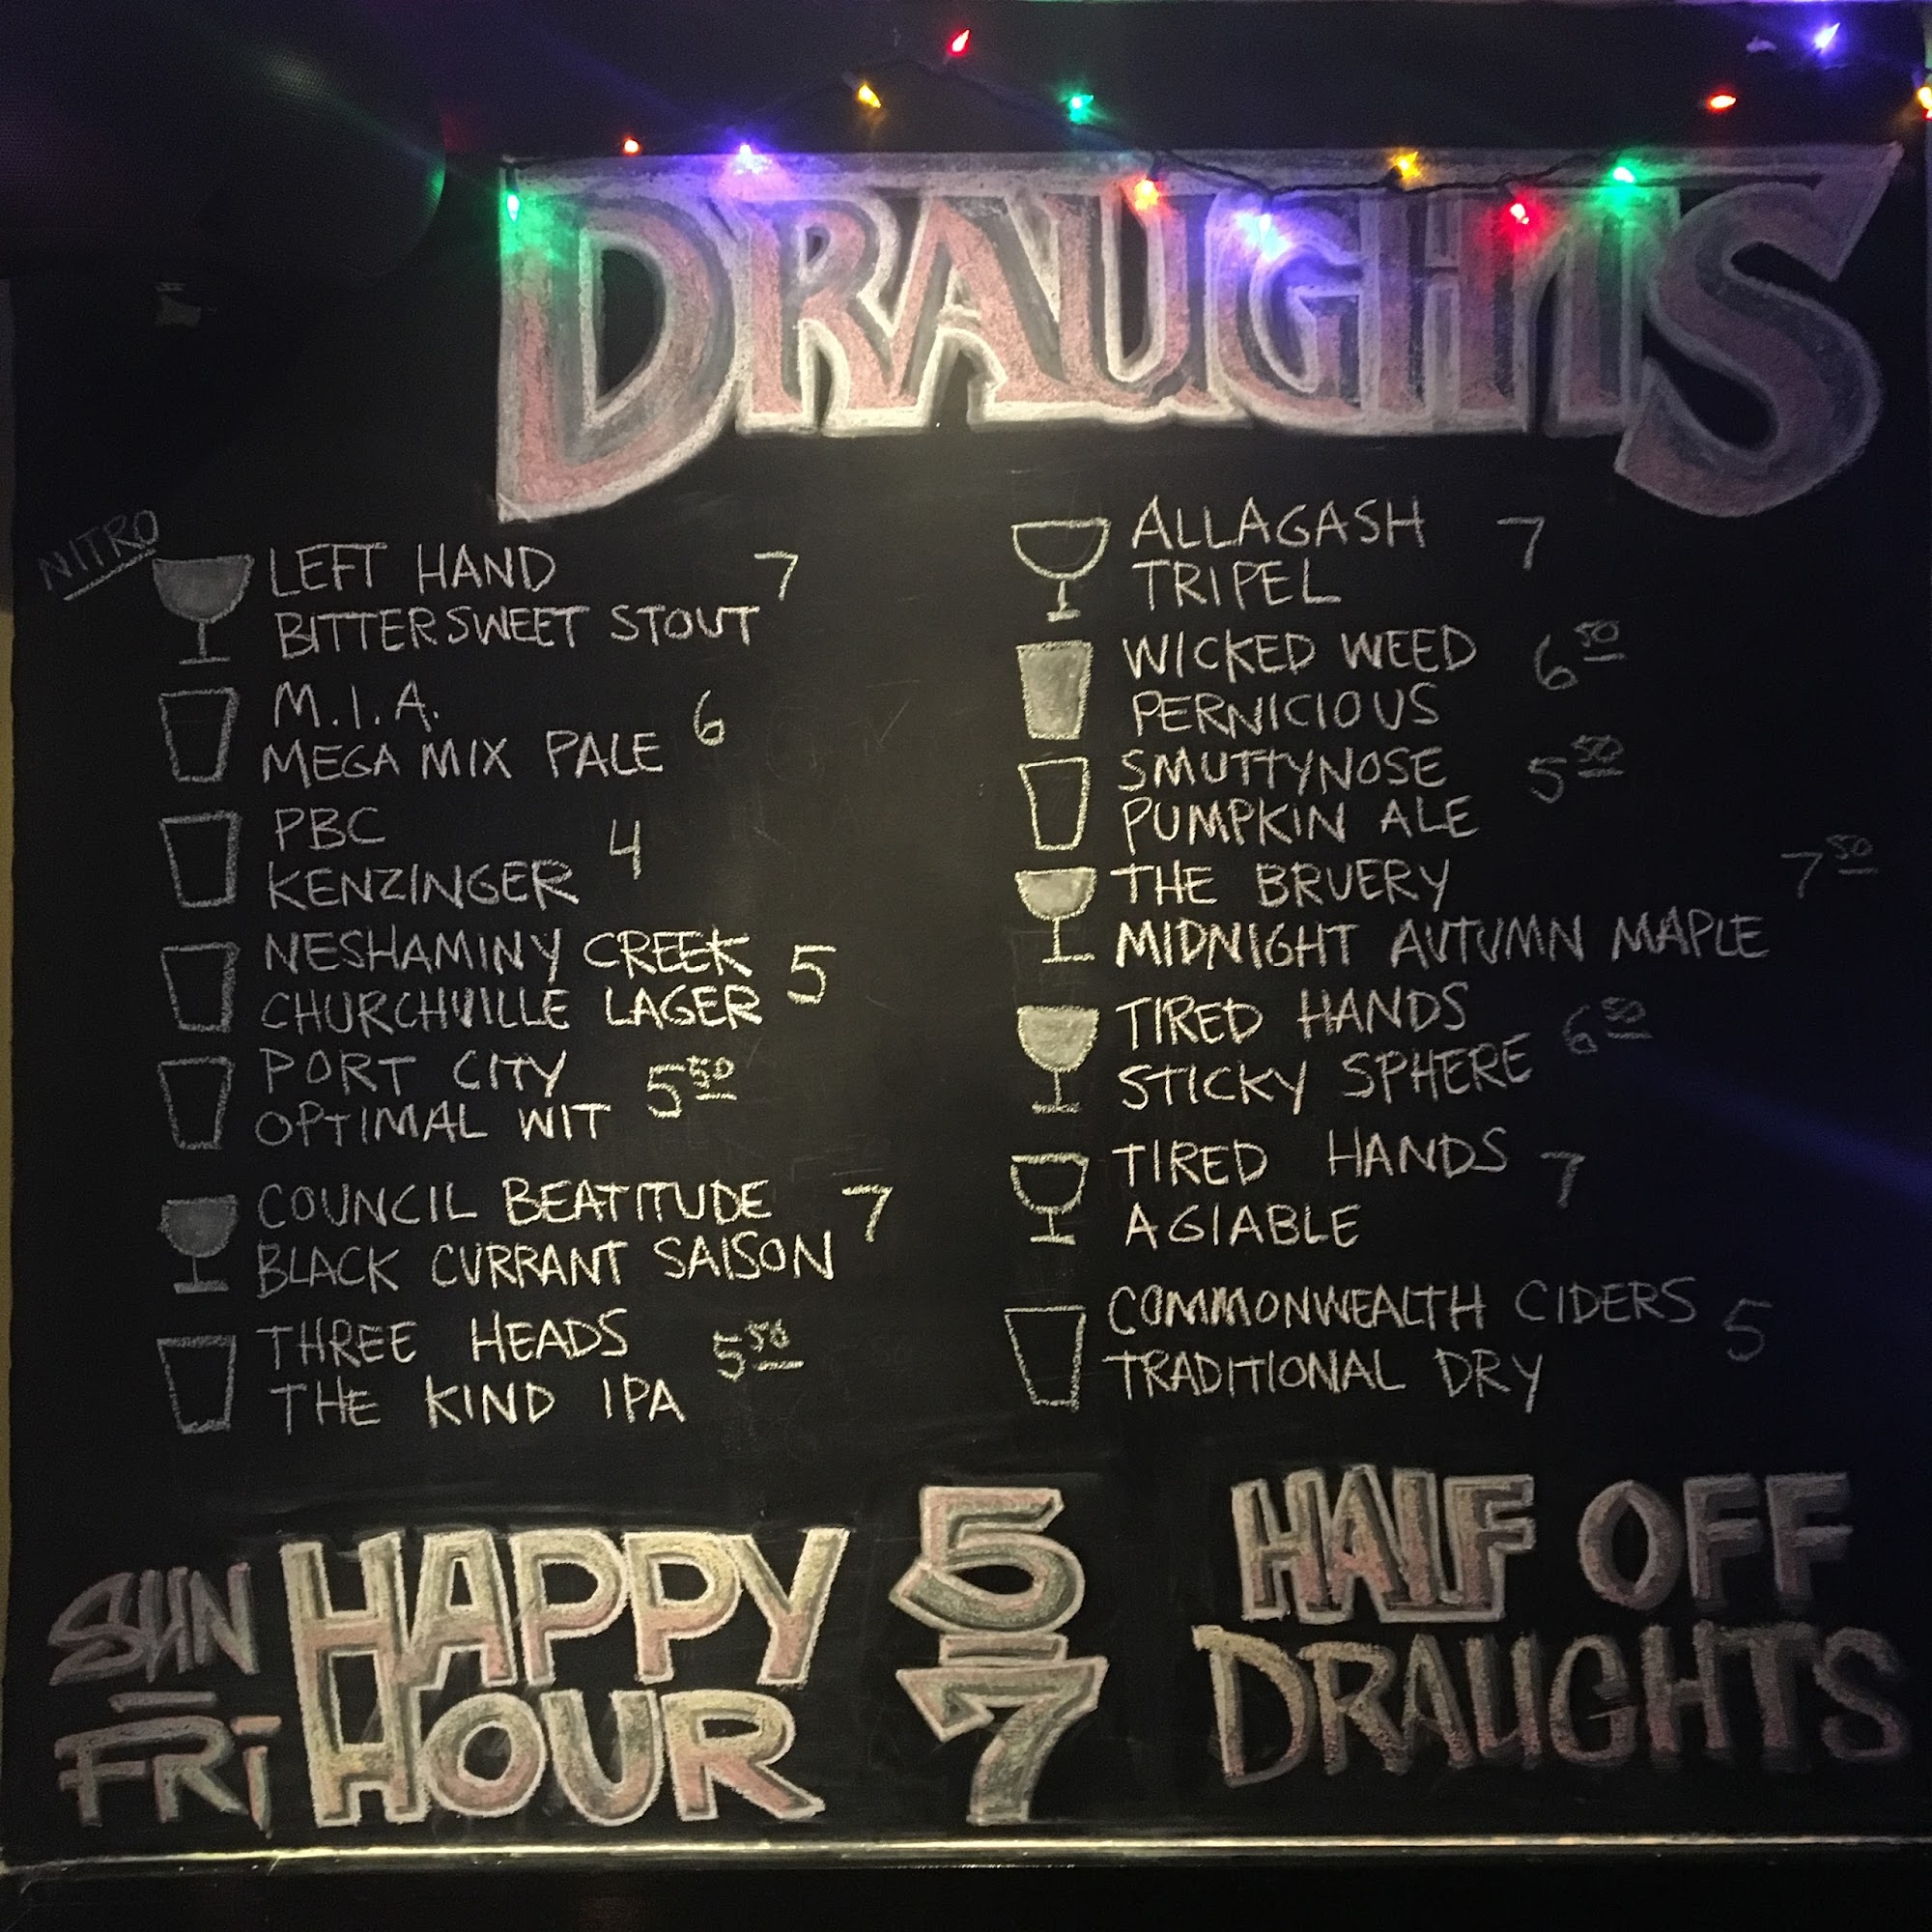 DRAUGHTS
NITRO
LEFT HAND 7
BITTERSWEET STOUT
M.I.A. 6
MEGA MIX PALE
PBC 4
KENZINGER
NESHAMINY CREEK 5
CHURCHVILLE LAGER
PORT CITY 5 50
OPTIMAL WIT
COUNCIL BEATITUDE 7
BLACK CURRANT SAISON
THREE HEADS 5 50
THE KIND IPA
ALLAGASH 7
TRIPEL
WICKED WEED 6 50
PERNICIOUS
SMUTTYNOSE 5 50
PUMPKIN ALE
THE BRUERY 7 50
MIDNIGHT AUTUMN MAPLE
TIRED HANDS 6 50
STICKY SPHERE
TIRED HANDS 7
AGIABLE
COMMONWEALTH CIDERS 5
TRADITIONAL DRY
SUN - FRI
HAPPY
HOUR
5 - 7
HALF OFF
DRAUGHTS